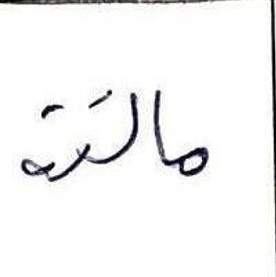 مالقة